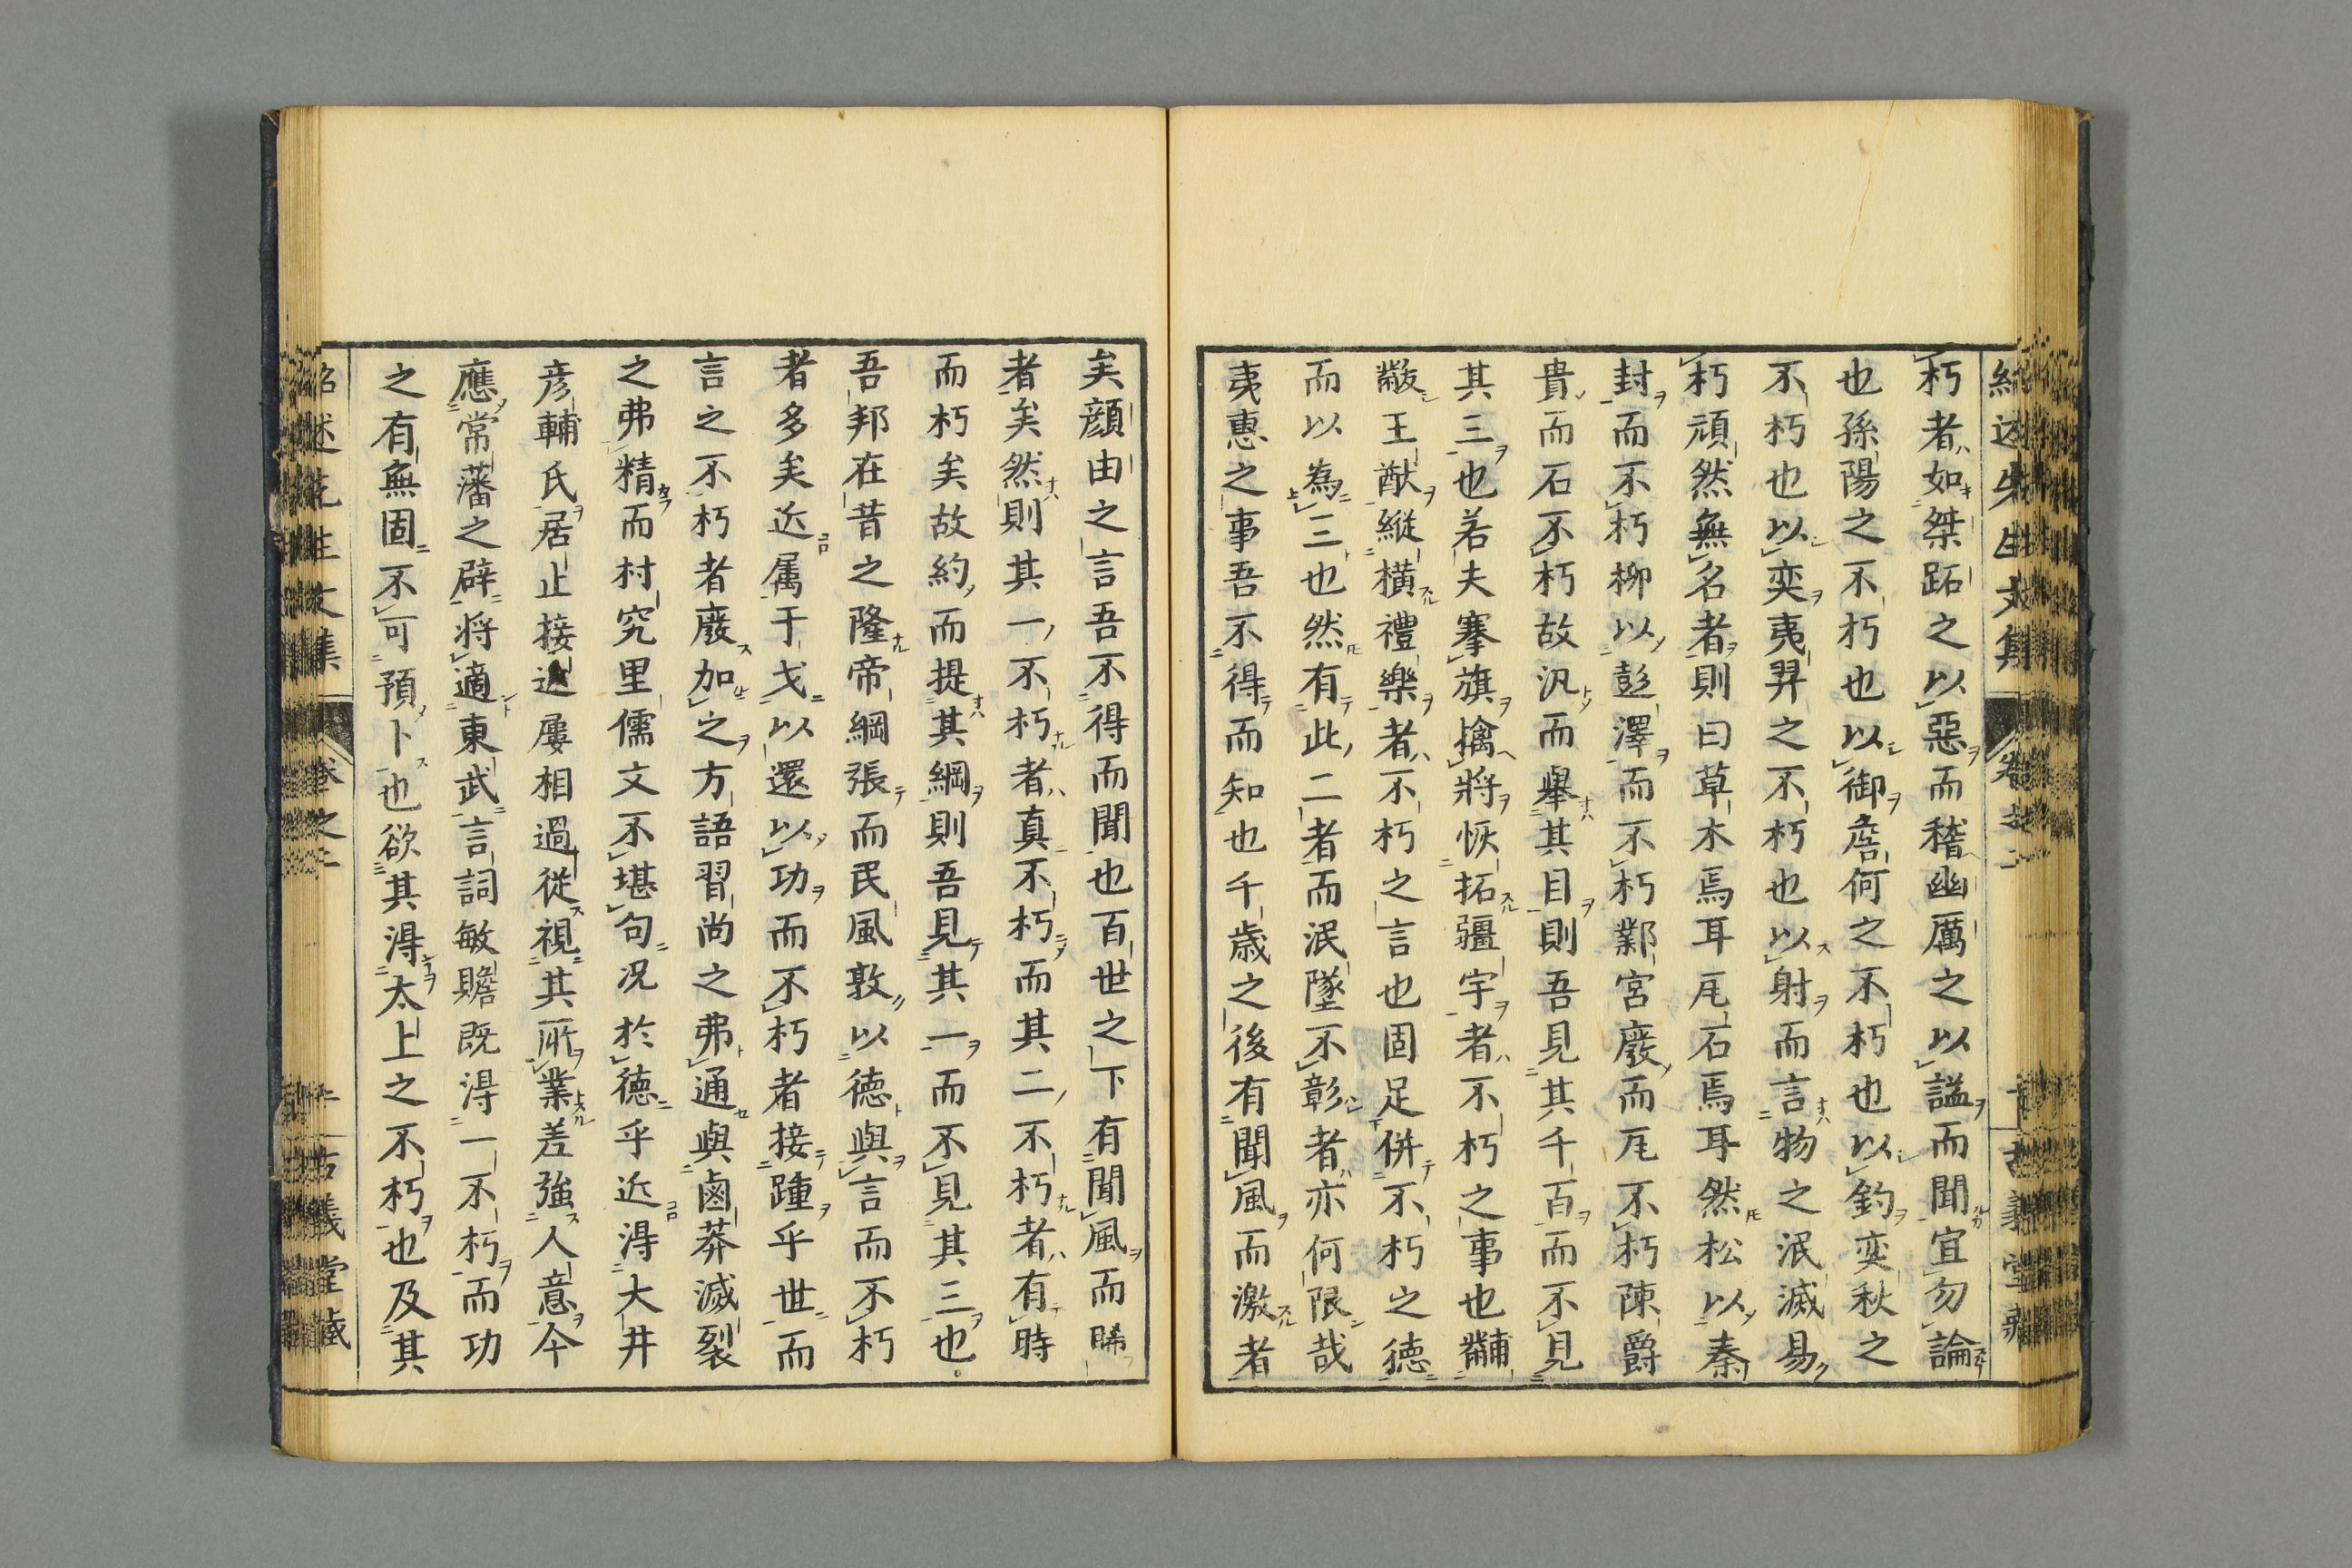 紹述先生文集 卷之二 古義堂藏
朽者如桀跖之以惡而稽幽厲之以謚而聞宜勿論
也孫陽之不朽也以御詹何之不朽也以釣奕秋之
不朽也以奕夷羿之不朽也以射而言物之泯滅易
朽頑然無名者則曰草木焉耳瓦石焉耳然松以秦
封而不朽柳以彭澤而不朽鄴宮廢而瓦不朽陳爵
貴而石不朽故汎而舉其目則吾見其千百而不見
其三也若夫搴旗擒將恢拓疆宇者不朽之事也黼
黻王猷縱橫禮樂者不朽之言也固足併不朽之德
而以為三也然有此二者而泯墜不彰者亦何限哉
夷惠之事吾不得而知也千歲之後有聞風而激者
矣顏由之言吾不得而聞也百世之下有聞風而睎
者矣然則其一不朽者真不朽而其二不朽者有時
而朽矣故約而提其綱則吾見其一而不見其三也。
吾邦在昔之隆帝綱張而民風敦以德與言而不朽
者多矣近属于戈以還以功而不朽者接踵乎世而
言之不朽者廢加之方語習尚之弗通與鹵莽滅裂
之弗精而村究里儒文不堪句況於德乎近淂大井
彥輔氏居止接迩屢相過從視其所業差強人意今
應常藩之辟將適東武言詞敏贍既淂一不朽而功
之有無固不可預卜也欲其淂太上之不朽也及其
紹述先生文集 卷之二 古義堂藏